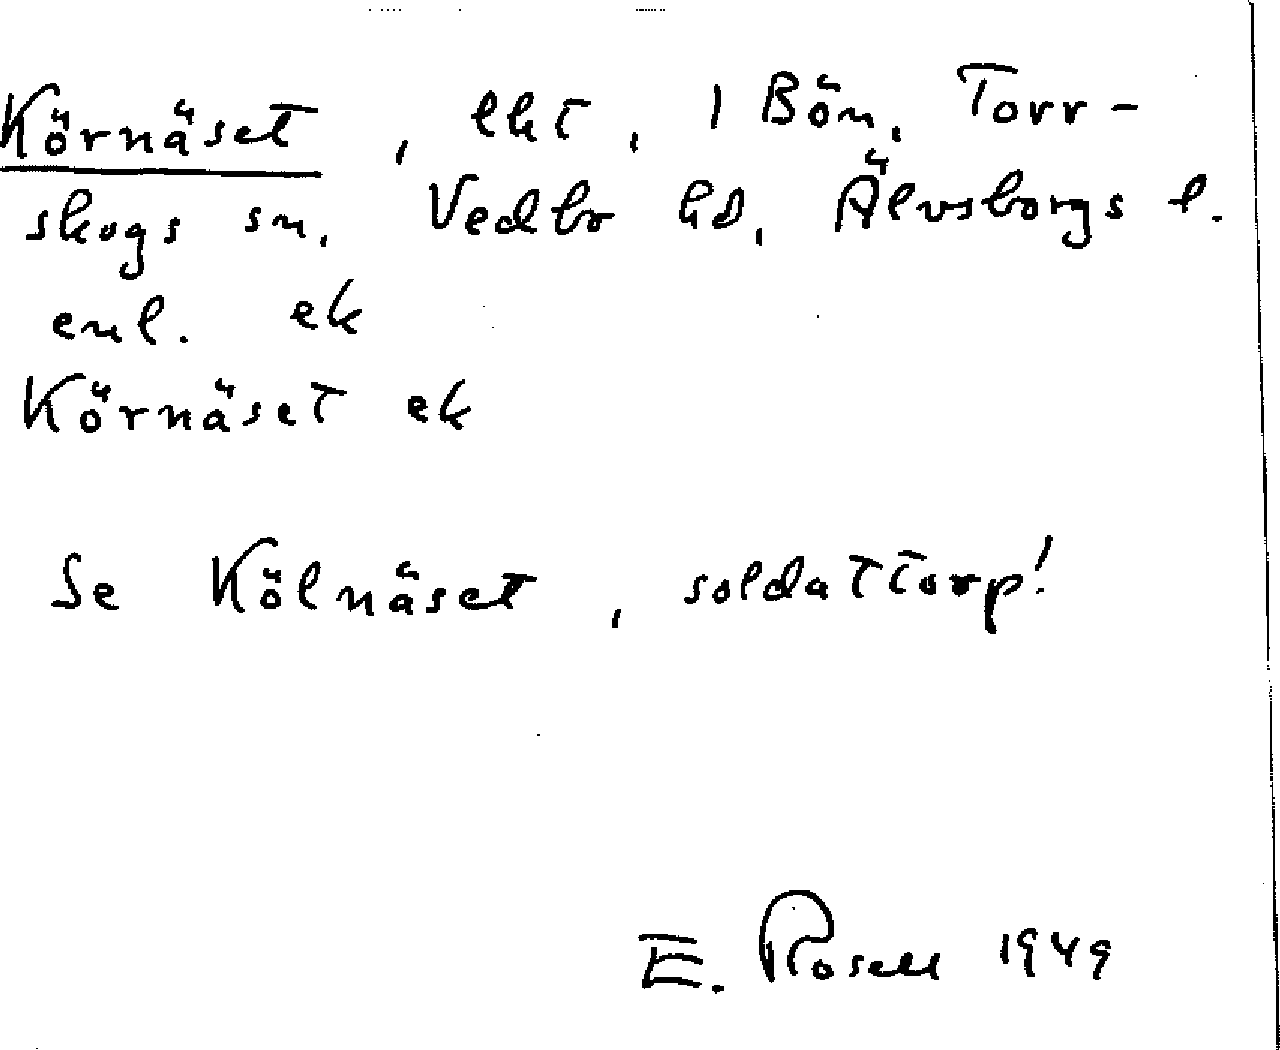 Körnäset, lht, 1 Bön, Torr-
skogs sn, Vedbo hd, Älvsborgs l.
enl. ek
Körnäset ek
Se Kölnäset, soldattorp!
E. Rosell 1949